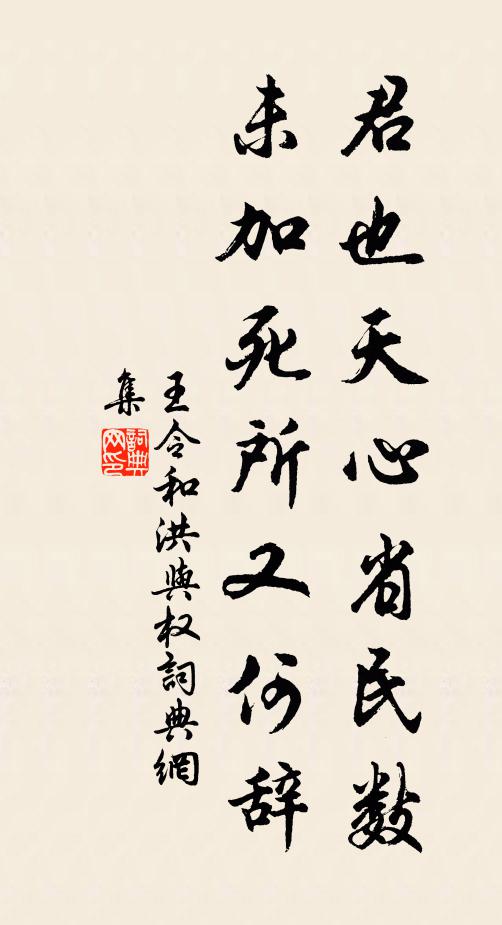 君也天心省民数
未加死所又何辞
王令和洪與权詞典網
集
詞典
网印